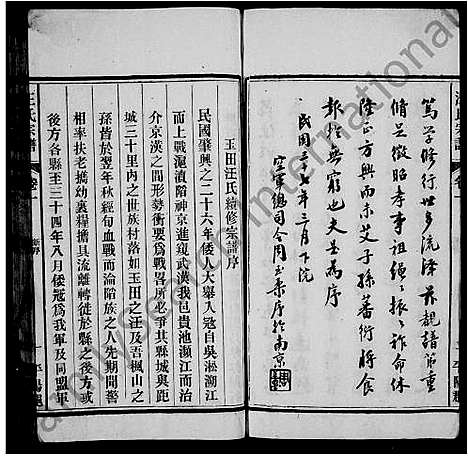 篤学修行世多流泽兹親譜第重
脩足徵昭孝事祖绳〻振〻祚命休
隆正方興而未艾子孫蕃衍將食
報於無窮也夫並為序
民國三十七年三月下浣
空軍總司令周至柔序於南京
玉田汪氏續修宗譜序
民國肇興之二十六年倭人大舉入寇自吳淞溯江
而上戰滬滇陷神京進窺武漢我同邑貴池瀕江而治
介京漢之間形勢衝要為戰畧所必爭其縣城與距
城三十里內之世族村落如玉田之汪及吾楓山之
孫皆於翌年秋經旬血戰而淪陷族之人先期聞警
相率扶老攜幼裹糧擔具流離轉徙於縣之後方或
後方各縣至三十四年八月倭寇為我軍及同盟軍
汪氏宗譜
卷一
新序
一
平陽郡